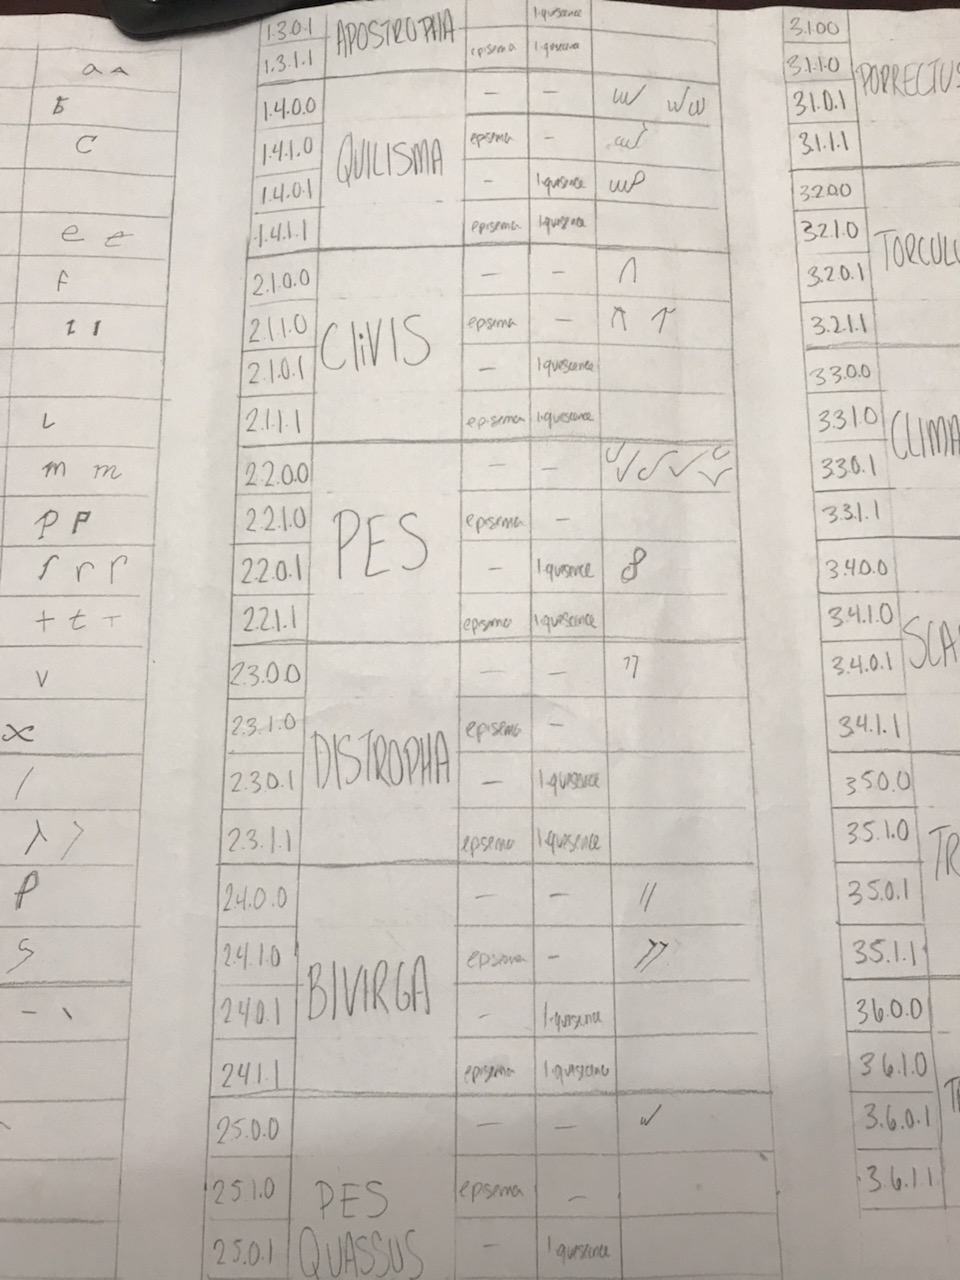 a A
b
c
e e
f
1 1
L
m m
p P
r r r
+ t T
v
x
/
λ >
p
s
- \
1.3.0.1 APOSTROPHA l-quescence
1.3.1.1 episema l-quescence
1.4.0.0 QUILISMA — —
1.4.1.0 episema -
1.4.0.1 - l-quescence
1.4.1.1 episema l-quescence
2.1.0.0 CLiVIS — —
2.1.1.0 episema —
2.1.0.1 — l-quescence
2.1.1.1 episema l-quescence
2.2.0.0 PES — —
2.2.1.0 episema —
2.2.0.1 — l-quescence
2.2.1.1 episema l-quescence
2.3.0.0 DISTROPHA — —
2.3.1.0 episema —
2.3.0.1 — l-quescence
2.3.1.1 episema l-quescence
2.4.0.0 BIVIRGA — — //
2.4.1.0 episema -
2.4.0.1 - l-quescence
2.4.1.1 episema l-quescence
2.5.0.0 PES QUASSUS — —
2.5.1.0 episema —
2.5.0.1 — l-quescence
3.1.0.0 PORRECTUS
3.1.1.0
3.1.0.1
3.1.1.1
3.2.0.0 TORCULU
3.2.1.0
3.2.0.1
3.2.1.1
3.3.0.0 CLIMA
3.3.1.0
3.3.0.1
3.3.1.1
3.4.0.0 SCA
3.4.1.0
3.4.0.1
3.4.1.1
3.5.0.0 TR
3.5.1.0
3.5.0.1
3.5.1.1
3.6.0.0 TR
3.6.1.0
3.6.0.1
3.6.1.1